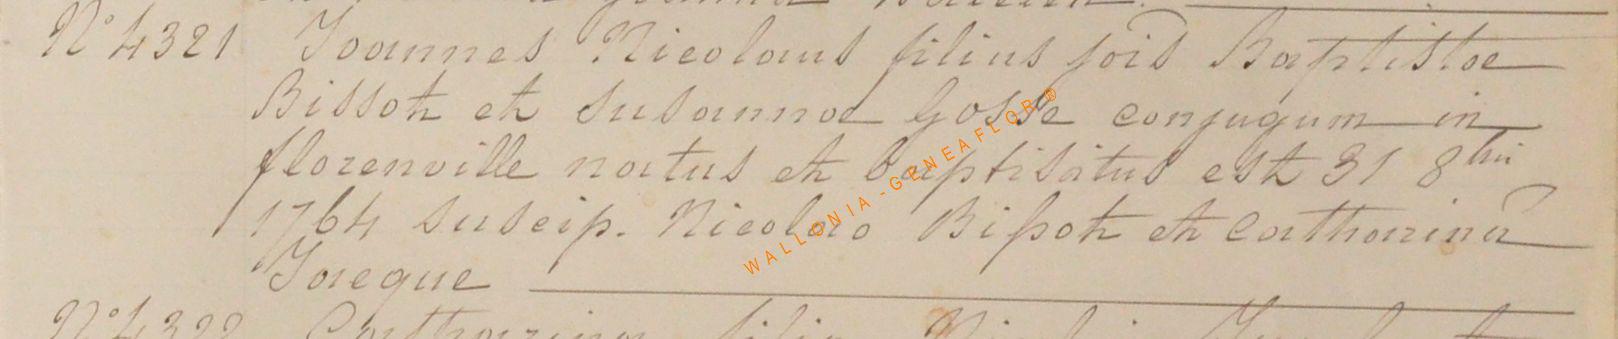 N° 4321 Joannes Nicolaus filius jois Baptistae
Bissot et Susanna Gosse conjugum in
florenville natus et baptisatus est 31 8bri
1764 suscip. Nicolao Bißot et Catharina
Jacque
N° 4322 Catharina filia
WALLONIA-GENEAFLOR®